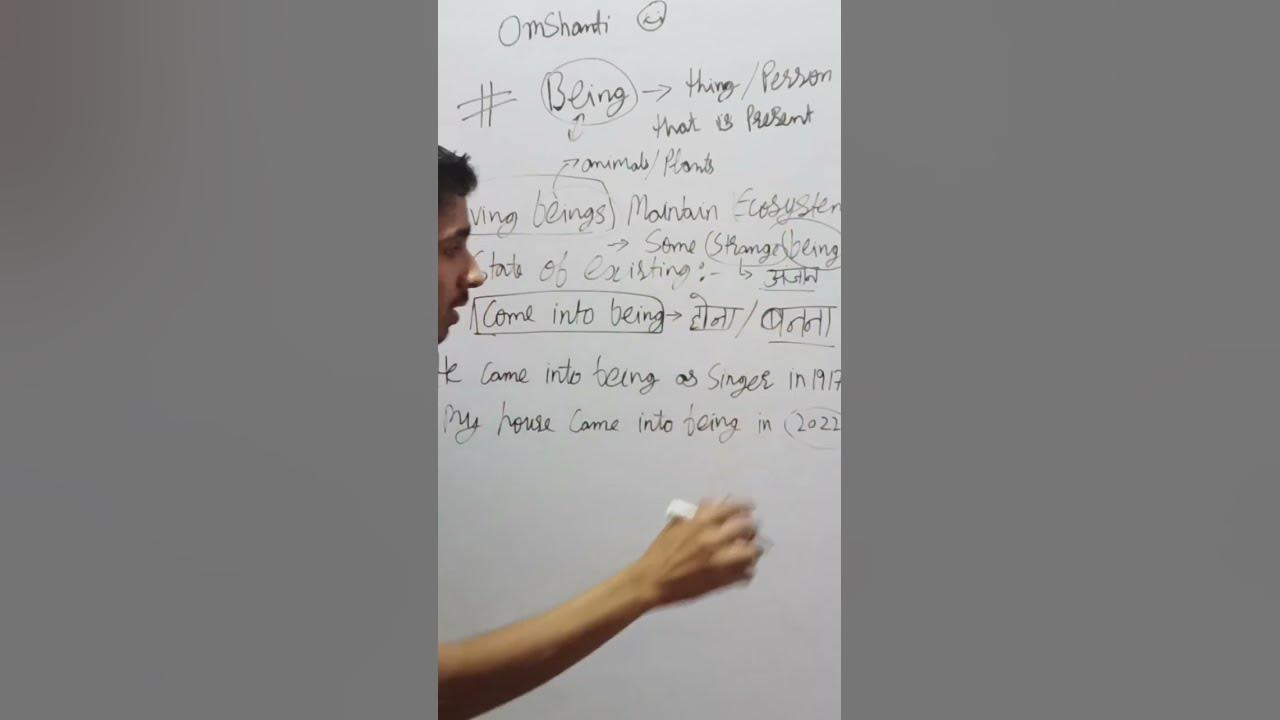 OmShanti
# Being → thing/Person
that is Present
→ animals/Plants
ving beings) Maintain Ecosystem
→ Some (Strange) being
State of existing :- ↳ अंजान
Come into being → होना / बनना
He came into being as Singer in 1917
My house Came into being in (2022